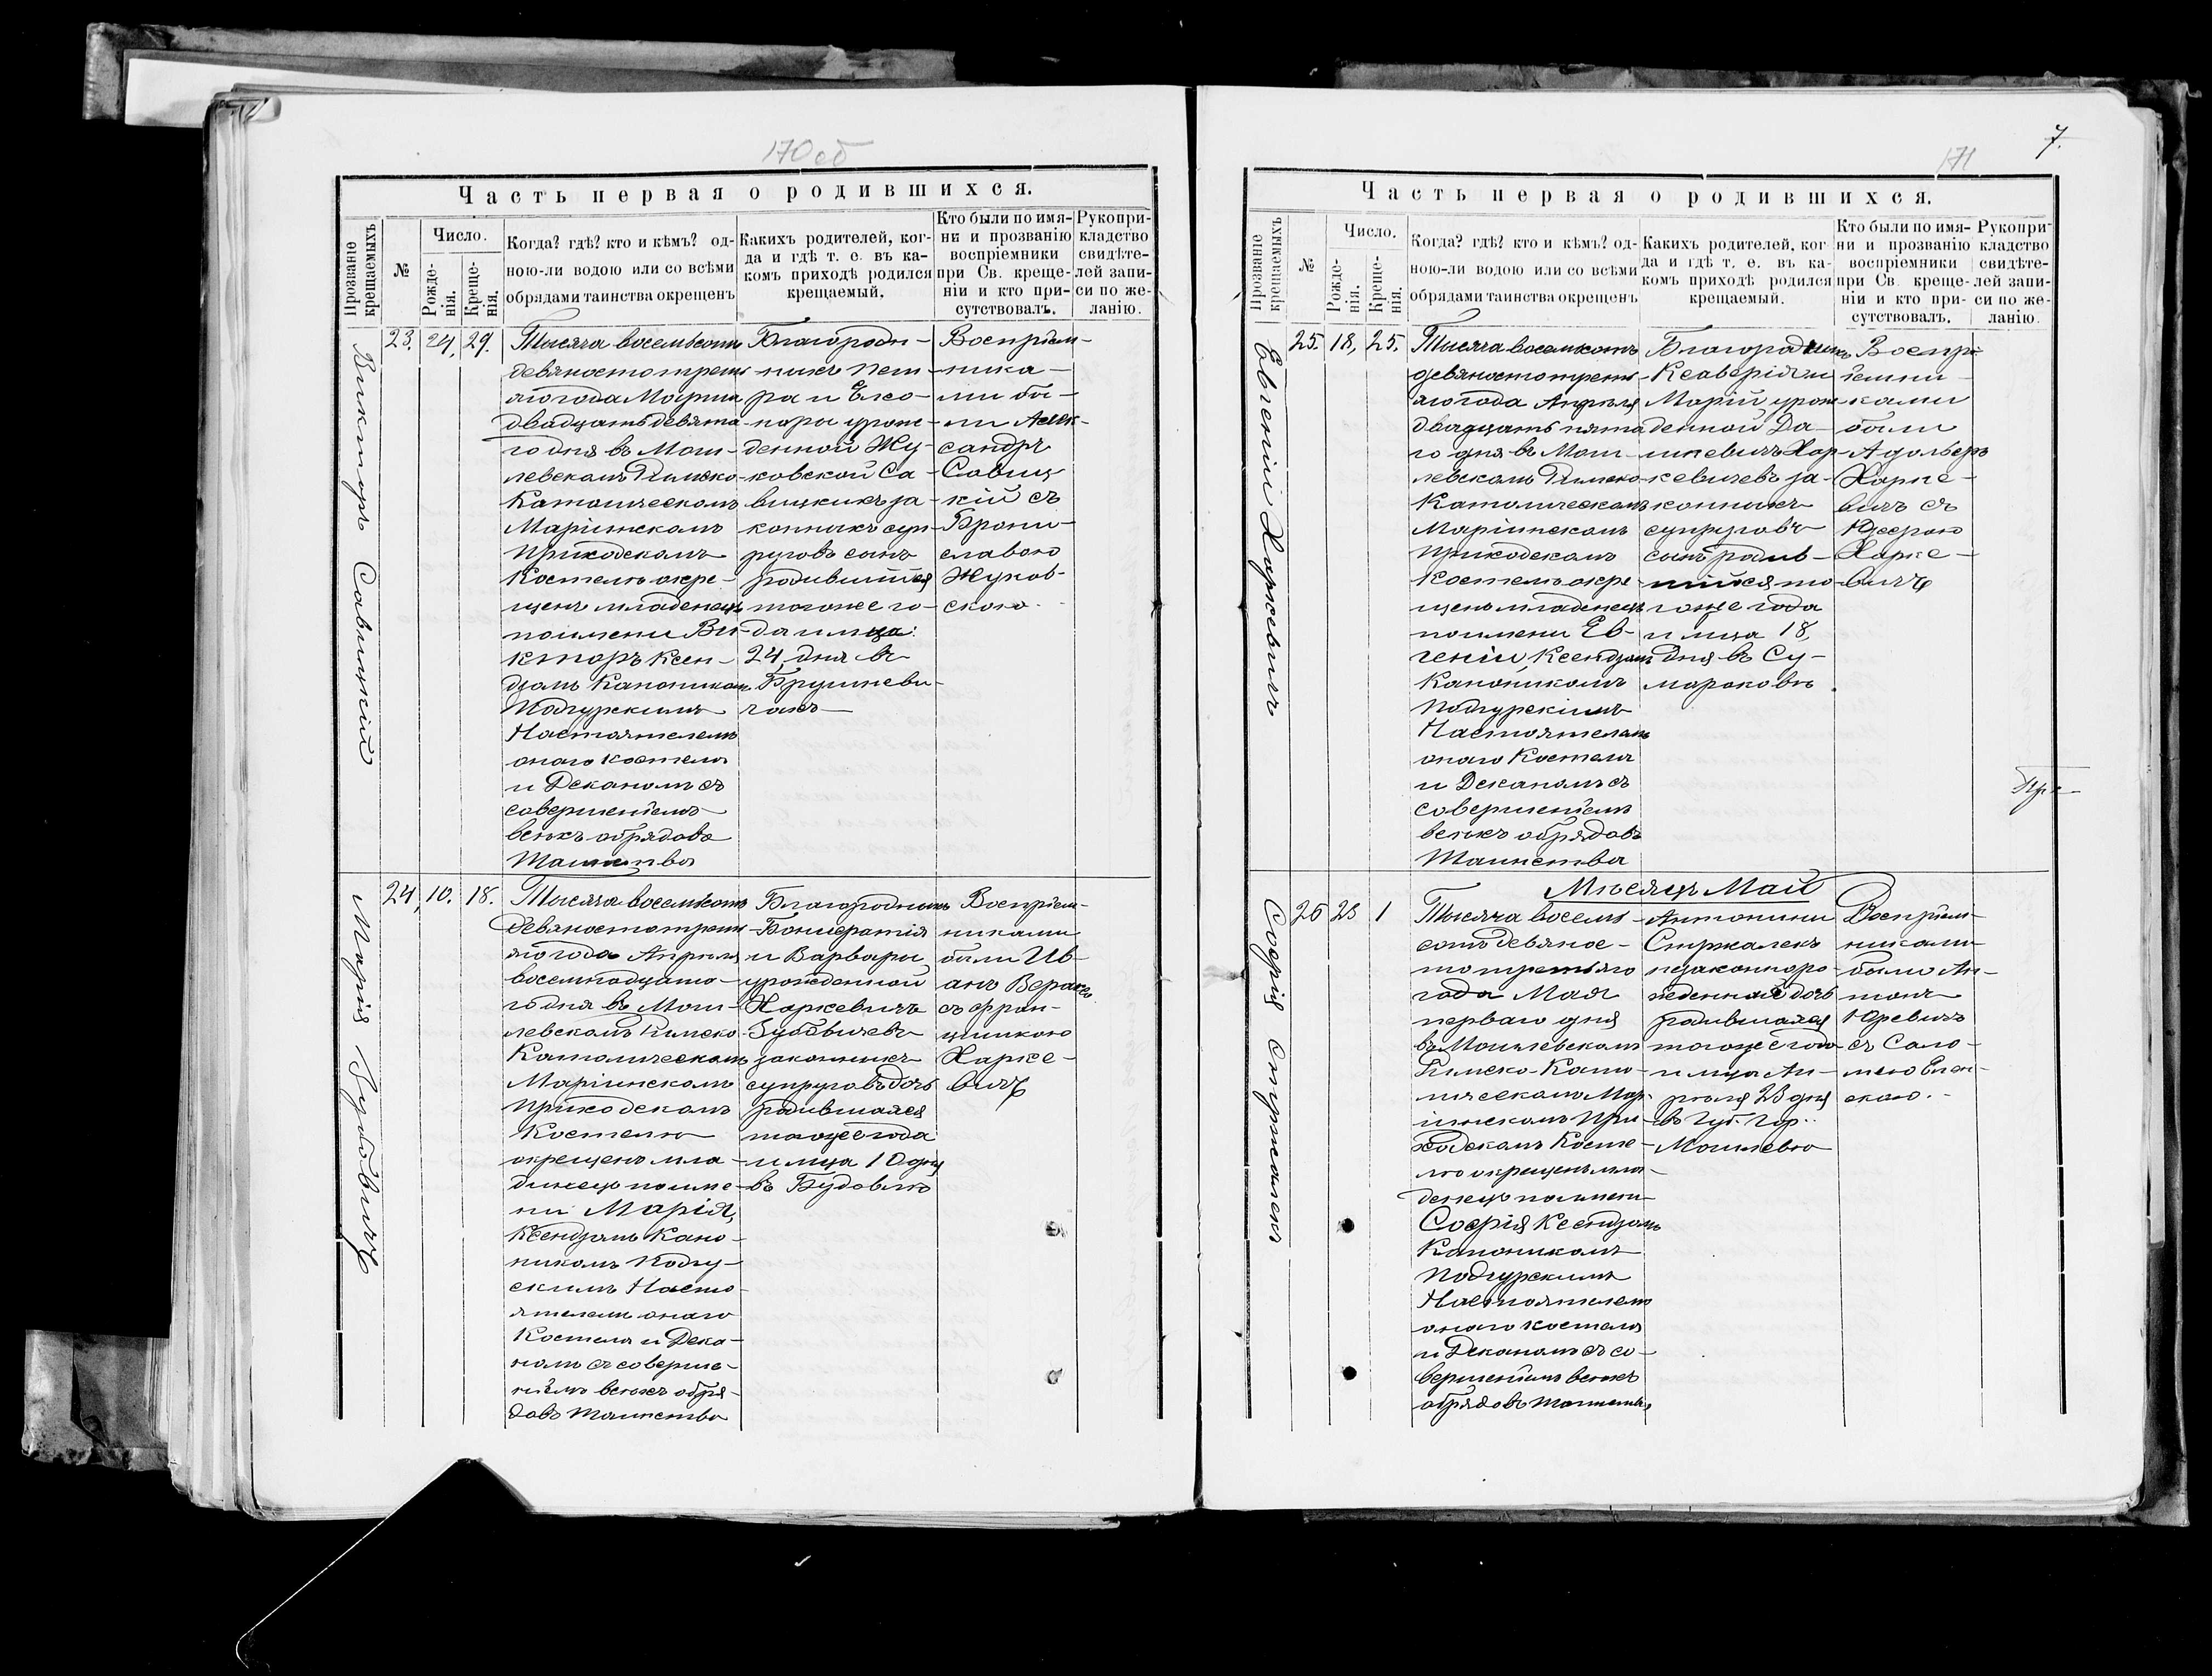 170 об
Часть первая о родившихся.
Прозваніе крещаемыхъ
№
Число.
Рожде-
нія.
Креще-
нія.
Когда? гдѣ? кто и кѣмъ? од-
ною-ли водою или со всѣми
обрядами таинства окрещенъ
Какихъ родителей, ког-
да и гдѣ т. е. въ ка-
комъ приходѣ родился
крещаемый.
Кто были по имя-
ни и прозванію
воспріемники
при Св. креще-
ніи и кто при-
сутствовалъ.
Рукопри-
кладство
свидѣте-
лей запи-
си по же-
ланію.
Викторъ Савицкій
23. 24, 29.
Тысяча восемьсотъ
девяносто треть
яго года Марта
двадцать девята
го дня въ Моги-
левскомъ Римско
Католическомъ
Маріинскомъ
Приходскомъ
Костелѣ окре-
щенъ младенецъ
по имени Ви-
кторъ Ксен-
дзомъ Каноникомъ
Подгурскимъ
Настоятелемъ
онаго Костела
и Деканомъ съ
совершеніемъ
всѣхъ обрядовъ
Таинства
Благородн-
ныхъ Пет-
ра и Елео-
норы урож-
денной Жу-
ковской Са-
вицкихъ за-
конныхъ суп-
руговъ сынъ
родившійся
того же го-
да и м-ца
24, дня въ
Брушневи-
чахъ
Воспріем-
ника-
ми бы-
ли Алек-
сандръ
Савиц
кій съ
Брони-
славою
Жуков-
скою.
Марія Зубовичъ
24, 10. 18.
Тысяча восемьсотъ
девяносто треть
яго года Апрѣля
восемнадцата-
го дня въ Моги-
левскомъ Римско
Католическомъ
Маріинскомъ
Приходскомъ
Костелѣ
окрещенъ мла-
денецъ по име-
ни Марія,
Ксендзомъ Кано-
никомъ Подгу-
скимъ Насто-
ятелемъ онаго
Костела и Дека-
номъ съ соверше-
ніемъ всѣхъ обря-
довъ таинства
Благородныхъ
Бонифатія
и Варвары
урожденной
Харкевичъ
Зубовичевъ
законныхъ
супруговъ дочь
родившаяся
того же года
и м-ца 10 дня
въ Будовлѣ
Воспріем-
никами
были Ив-
анъ
съ Фран-
цишкою
Харке-
вичъ
7.
171
Часть первая о родившихся.
Прозваніе крещаемыхъ
№
Число.
Рожде-
нія.
Креще-
нія.
Когда? гдѣ? кто и кѣмъ? од-
ною-ли водою или со всѣми
обрядами таинства окрещенъ
Какихъ родителей, ког
да и гдѣ т. е. въ ка-
комъ приходѣ родился
крещаемый.
Кто были по имя-
ни и прозванію
воспріемники
при Св. креще-
ніи и кто при-
сутствовалъ.
Рукопри-
кладство
свидѣте-
лей запи-
си по же-
ланію.
Евгеній Харкевичъ
25. 18, 25.
Тысяча восемьсотъ
девяносто треть-
яго года Апрѣля
двадцать пята
го дня въ Моги-
левскомъ Римско-
Католическомъ
Маріинскомъ
Приходскомъ
Костелѣ окре
щенъ младенецъ
по имени Ев-
геній, Ксендзомъ
Каноникомъ
Подгурскимъ
Настоятелемъ
онаго Костела
и Деканомъ съ
совершеніемъ
всѣхъ обрядовъ
Таинства
Благородныхъ
Ксаверія и
Маріи урож
денной Да-
шкевичъ Хар-
кевичевъ за-
конныхъ
супруговъ
сынъ родив-
шійся то-
го же года
и м-ца 18,
дня въ Су-
мароковѣ.
Воспр
іемни-
ками
были
Адольфъ
Харке-
вичъ съ
Юзефою
Харке-
вичъ
Мѣсяцъ Май
Софія Стржалекъ
26 23 1
Тысяча восемь-
сотъ девянос-
то третьяго
года Мая
перваго дня
въ Могилевскомъ
Римско-Като-
лическомъ Мар-
іинскомъ При-
ходскомъ Косте-
лѣ окрещенъ мла-
денецъ по имени
Софія Ксендзомъ
Каноникомъ
Подгурскимъ
Настоятелемъ
онаго костела
и Деканомъ съ со-
вершеніемъ всѣхъ
обрядовъ таинства
Антонины
Стржалекъ
незаконноро-
жденная дочь
родившаяся
того же года
и м-ца Ап-
рѣля 23 дня
въ Губ. Гор.
Могилевѣ
Воспріем-
никами
были Ан-
тонъ
Юревичъ
съ Сало-
меею
скою.